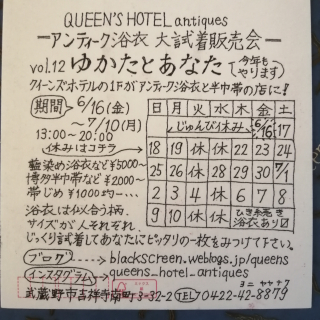 QUEEN'S HOTEL antiques
ーアンティーク浴衣 大試着販売会ー
vol.12 ゆかたとあなた (今年もやります)
クイーンズホテルの1Fがアンティーク浴衣と半巾帯の店に!
期間 6/16(金)
〜7/10(月)
13:00〜20:00
休みはコチラ
日 月 火 水 木 金 土
じゅんび休み 6/16 17
18 19 休 休 22 23 24
25 26 休 休 29 30 7/1
2 3 4 休 6 7 8
9 10 休 休 ひき続き浴衣あり
籠染め浴衣など¥5000〜
博多半巾帯など¥2000〜
帯じめ¥1000均…
浴衣は似合う柄、
サイズが人それぞれ。
じっくり試着してあなたにピッタリの一枚をみつけて下さい。
ブログ blackscreen.weblogs.jp/queens
インスタグラム queens_hotel_antiques
武蔵野市吉祥寺南町3-32-2 TEL 0422-42-8879
ヨニ ヤヤナク